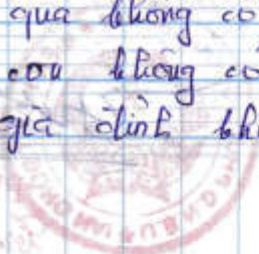 qua không có
con không có
gia đình kh